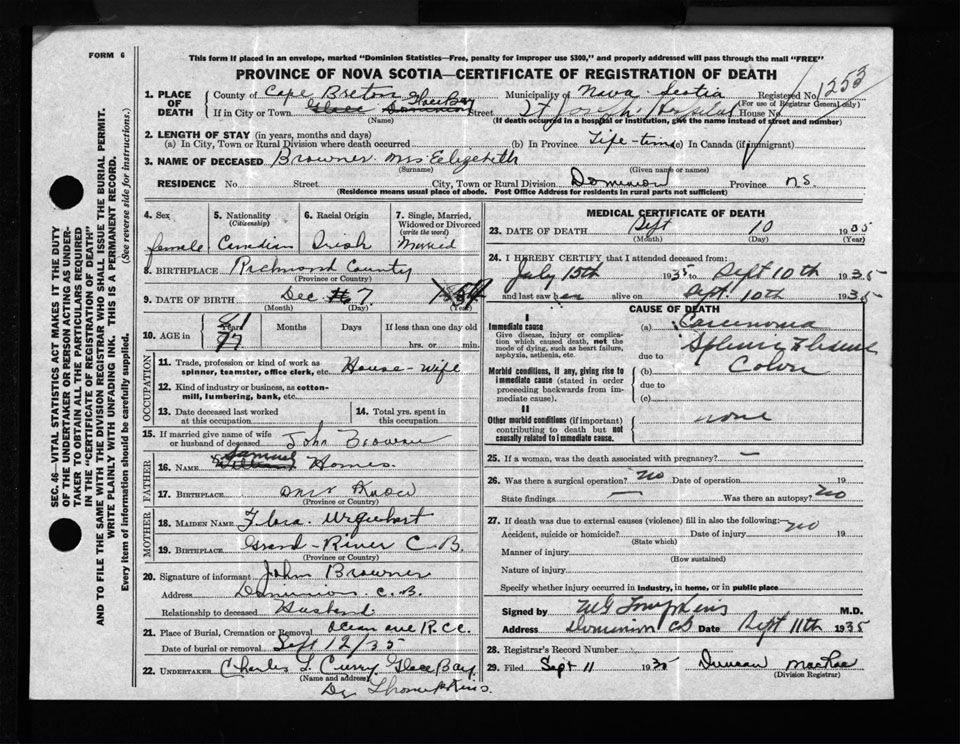 FORM 6
This form if placed in an envelope, marked "Dominion Statistics—Free, penalty for improper use $300," and properly addressed will pass through the mail "FREE"
PROVINCE OF NOVA SCOTIA—CERTIFICATE OF REGISTRATION OF DEATH
1253
1. PLACE OF DEATH
County of Cape Breton Municipality of Nova Scotia Registered No.
(For use of Registrar General only)
If in City or Town Glace Dominion Glace Bay Street St Joseph's Hospital House No.
(Name) (If death occurred in a hospital or institution, give the name instead of street and number)
2. LENGTH OF STAY (in years, months and days)
(a) In City, Town or Rural Division where death occurred (b) In Province Life-time (c) In Canada (if immigrant)
3. NAME OF DECEASED Browner Mrs Elizabeth
(Surname) (Given name or names)
RESIDENCE No. Street City, Town or Rural Division Dominion Province N.S.
(Residence means usual place of abode. Post Office Address for residents in rural parts not sufficient)
4. Sex female
5. Nationality (Citizenship) Canadian
6. Racial Origin Irish
7. Single, Married, Widowed or Divorced (write the word) Married
8. BIRTHPLACE Richmond County
(Province or Country)
9. DATE OF BIRTH Dec. 7 1854
(Month) (Day) (Year)
10. AGE in 81 Years Months Days If less than one day old
77 hrs. or min.
OCCUPATION
11. Trade, profession or kind of work as spinner, teamster, office clerk, etc. House-wife
12. Kind of industry or business, as cotton-mill, lumbering, bank, etc.
13. Date deceased last worked at this occupation
14. Total yrs. spent in this occupation
15. If married give name of wife or husband of deceased John Browner
FATHER
16. NAME William Samuel Homes.
17. BIRTHPLACE
(Province or Country)
MOTHER
18. MAIDEN NAME Flora Urquhart
19. BIRTHPLACE Grand-River C.B.
(Province or Country)
20. Signature of informant John Browner
Address Dominion C.B.
Relationship to deceased Husband.
21. Place of Burial, Cremation or Removal Ocean ave R.C.C.
Date of burial or removal Sept 12/35
22. UNDERTAKER Charles L Curry Glace Bay.
(Name and address)
Dr Thompkins.
MEDICAL CERTIFICATE OF DEATH
23. DATE OF DEATH Sept 10 1935
(Month) (Day) (Year)
24. I HEREBY CERTIFY that I attended deceased from:
July 15th 1935 to Sept 10th 1935
and last saw her alive on Sept. 10th 1935
CAUSE OF DEATH
I
Immediate cause
Give disease, injury or complication which caused death, not the mode of dying, such as heart failure, asphyxia, asthenia, etc.
(a) Carcinoma
Splenic Flexure
due to
Morbid conditions, if any, giving rise to immediate cause (stated in order proceeding backwards from immediate cause).
(b) Colon
due to
(c)
II
Other morbid conditions (if important) contributing to death but not causally related to immediate cause.
none
25. If a woman, was the death associated with pregnancy? –
26. Was there a surgical operation? No Date of operation 19
State findings — Was there an autopsy? No
27. If death was due to external causes (violence) fill in also the following:— no
Accident, suicide or homicide? Date of injury 19
(State which)
Manner of injury
(How sustained)
Nature of injury
Specify whether injury occurred in industry, in home, or in public place
Signed by M.G. Tompkins M.D.
Address Dominion CB Date Sept 11th 1935
28. Registrar's Record Number
29. Filed Sept 11 1935 Duncan MacRae
(Division Registrar)
SEC. 46—VITAL STATISTICS ACT MAKES IT THE DUTY
OF THE UNDERTAKER OR PERSON ACTING AS UNDER-
TAKER TO OBTAIN ALL THE PARTICULARS REQUIRED
IN THE "CERTIFICATE OF REGISTRATION OF DEATH"
AND TO FILE THE SAME WITH THE DIVISION REGISTRAR WHO SHALL ISSUE THE BURIAL PERMIT.
WRITE PLAINLY WITH UNFADING INK. THIS IS A PERMANENT RECORD.
Every item of information should be carefully supplied. (See reverse side for instructions.)